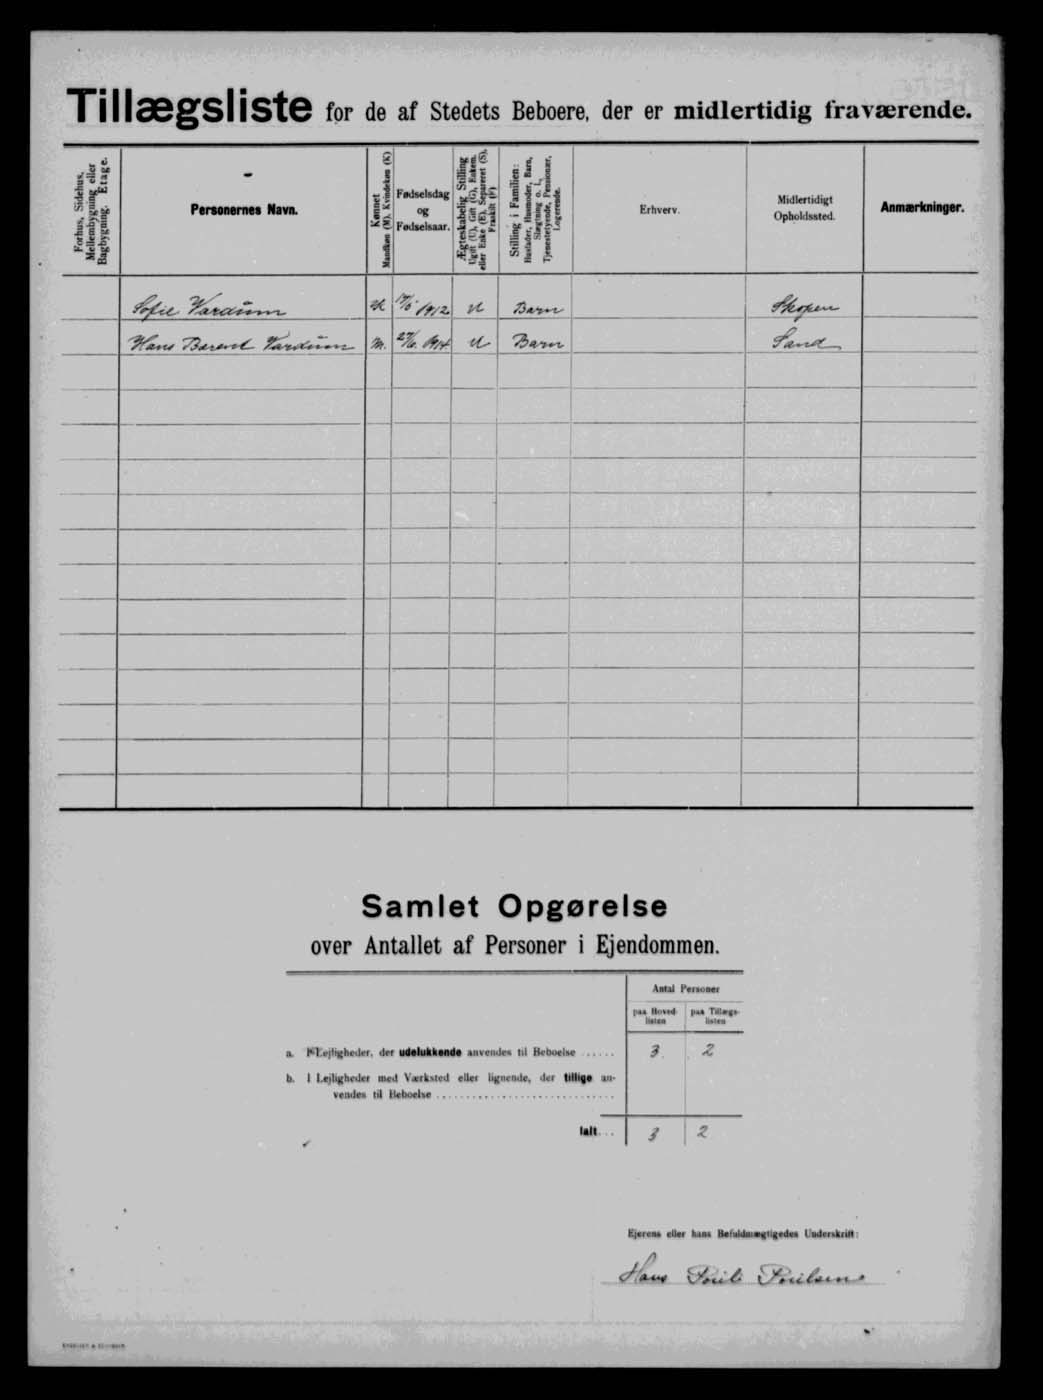 Tillægsliste for de af Stedets Beboere, der er midlertidig fraværende.
Forhus, Sidehus, Mellembygning eller Bagbygning. Etage.
Personernes Navn.
Kønnet
Mandkøn (M). Kvindekøn (K)
Fødselsdag
og
Fødselsaar.
Ægteskabelig Stilling
Ugift (U), Gift (G), Enkem. eller Enke (E), Separeret (S), Fraskilt (F)
Stilling i Familien:
Husfader, Husmoder, Barn, Slægtning o. l., Tjenestetyende, Pensionær, Logerende.
Erhverv.
Midlertidigt
Opholdssted.
Anmærkninger.
Sofie Vardum K 1912 U Barn Skopen
Hans Barent Vardum M. 27/6. 1914 U Barn Sand
Samlet Opgørelse
over Antallet af Personer i Ejendommen.
Antal Personer
paa Hoved-
listen
paa Tillægs-
listen
a. I Lejligheder, der udelukkende anvendes til Beboelse ...... 3 2
b. I Lejligheder med Værksted eller lignende, der tillige an-
vendes til Beboelse ..............................
Ialt... 3 2
Ejerens eller hans Befuldmægtigedes Underskrift:
Hans Pouli Poulsen